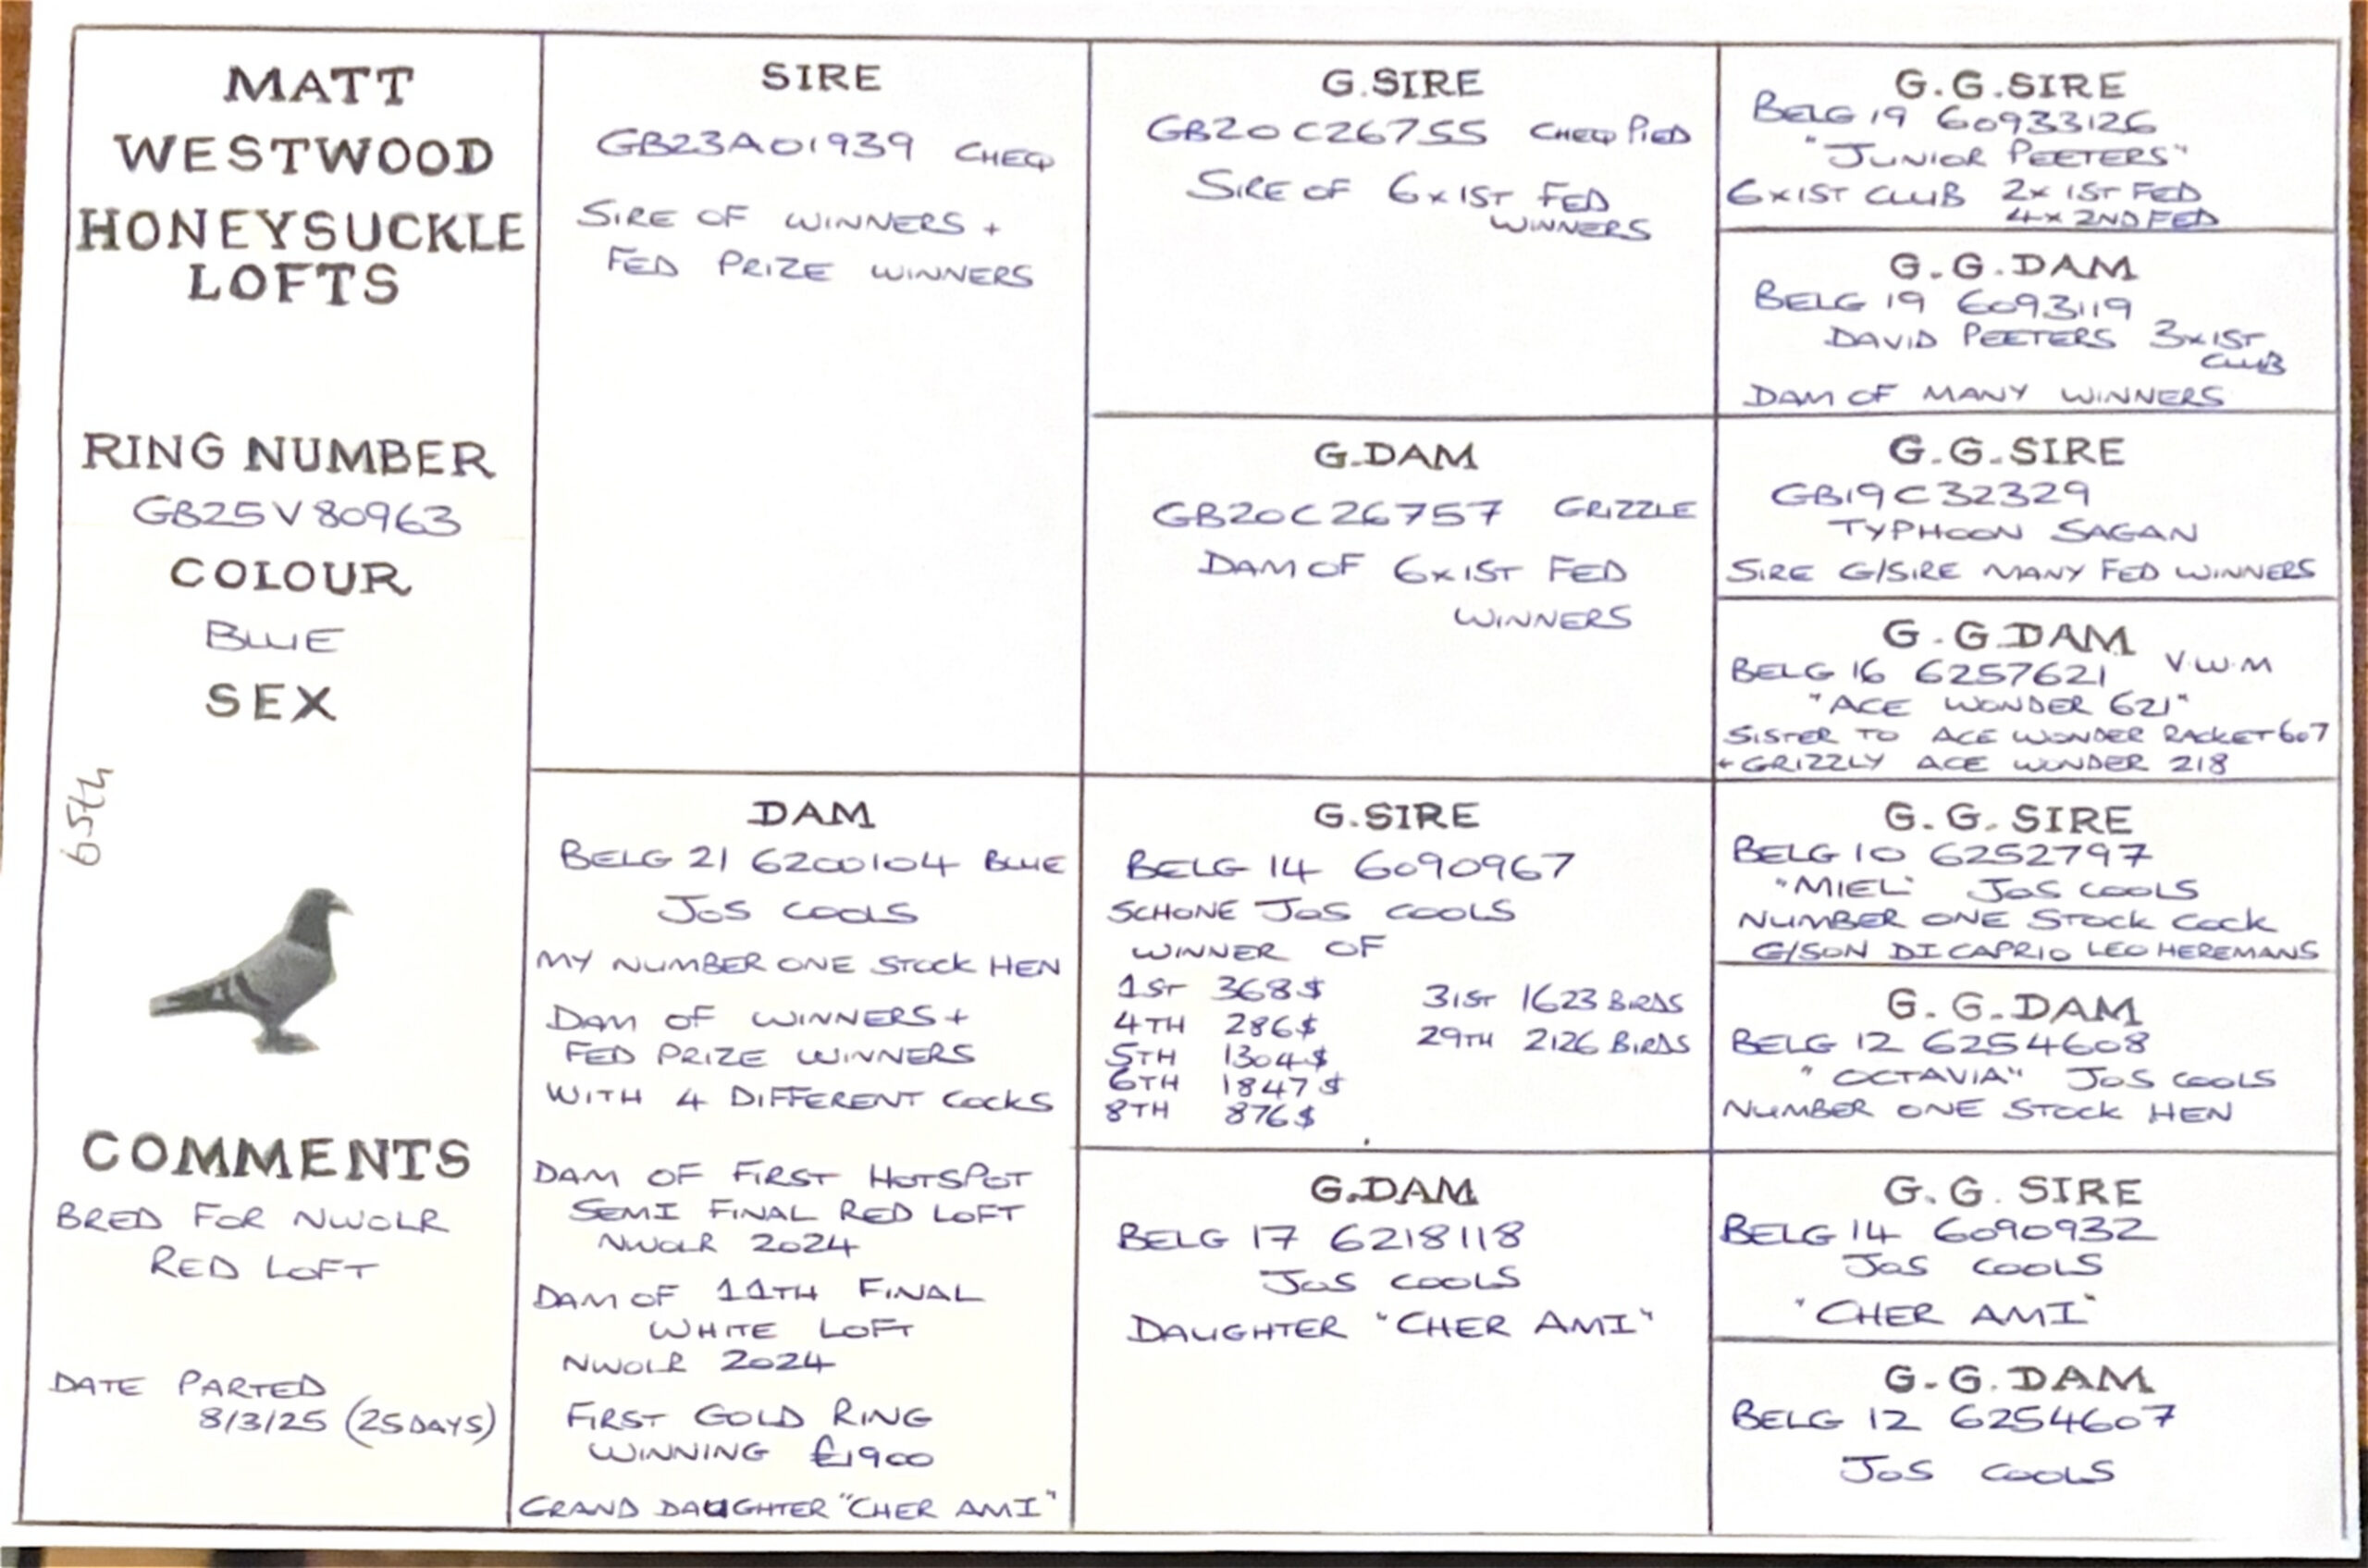 MATT
WESTWOOD
HONEYSUCKLE
LOFTS
RING NUMBER
GB25V80963
COLOUR
BLUE
SEX
65th
COMMENTS
BRED FOR NWOLR
RED LOFT
DATE PARTED
8/3/25 (25DAYS)
SIRE
GB23A01939 CHEQ
SIRE OF WINNERS +
FED PRIZE WINNERS
DAM
BELG 21 6200104 BLUE
JOS COOLS
MY NUMBER ONE STOCK HEN
DAM OF WINNERS +
FED PRIZE WINNERS
WITH 4 DIFFERENT COCKS
DAM OF FIRST HOTSPOT
SEMI FINAL RED LOFT
NWOLR 2024
DAM OF 11TH FINAL
WHITE LOFT
NWOLR 2024
FIRST GOLD RING
WINNING £1900
GRAND DAUGHTER "CHER AMI"
G.SIRE
GB20C26755 CHEQ PIED
SIRE OF 6x1ST FED
WINNERS
G.DAM
GB20C26757 GRIZZLE
DAM OF 6x1ST FED
WINNERS
G.SIRE
BELG 14 6090967
SCHONE JOS COOLS
WINNER OF
1ST 368$ 31ST 1623 BIRDS
4TH 286$ 29TH 2126 BIRDS
5TH 1304$
6TH 1847$
8TH 876$
G.DAM
BELG 17 6218118
JOS COOLS
DAUGHTER "CHER AMI"
G.G.SIRE
BELG 19 60933126
"JUNIOR PEETERS"
6x1ST CLUB 2x 1ST FED
4x 2ND FED
G.G.DAM
BELG 19 6093119
DAVID PEETERS 3x1ST
CLUB
DAM OF MANY WINNERS
G.G.SIRE
GB19C32329
TYPHOON SAGAN
SIRE G/SIRE MANY FED WINNERS
G.G.DAM
BELG 16 6257621 V.W.M
"ACE WONDER 621"
SISTER TO ACE WONDER RACKET 607
+ GRIZZLY ACE WONDER 218
G.G.SIRE
BELG 10 6252797
"MIEL" JOS COOLS
NUMBER ONE STOCK COCK
G/SON DI CAPRIO LEO HEREMANS
G.G.DAM
BELG 12 6254608
"OCTAVIA" JOS COOLS
NUMBER ONE STOCK HEN
G.G.SIRE
BELG 14 6090932
JOS COOLS
"CHER AMI"
G.G.DAM
BELG 12 6254607
JOS COOLS